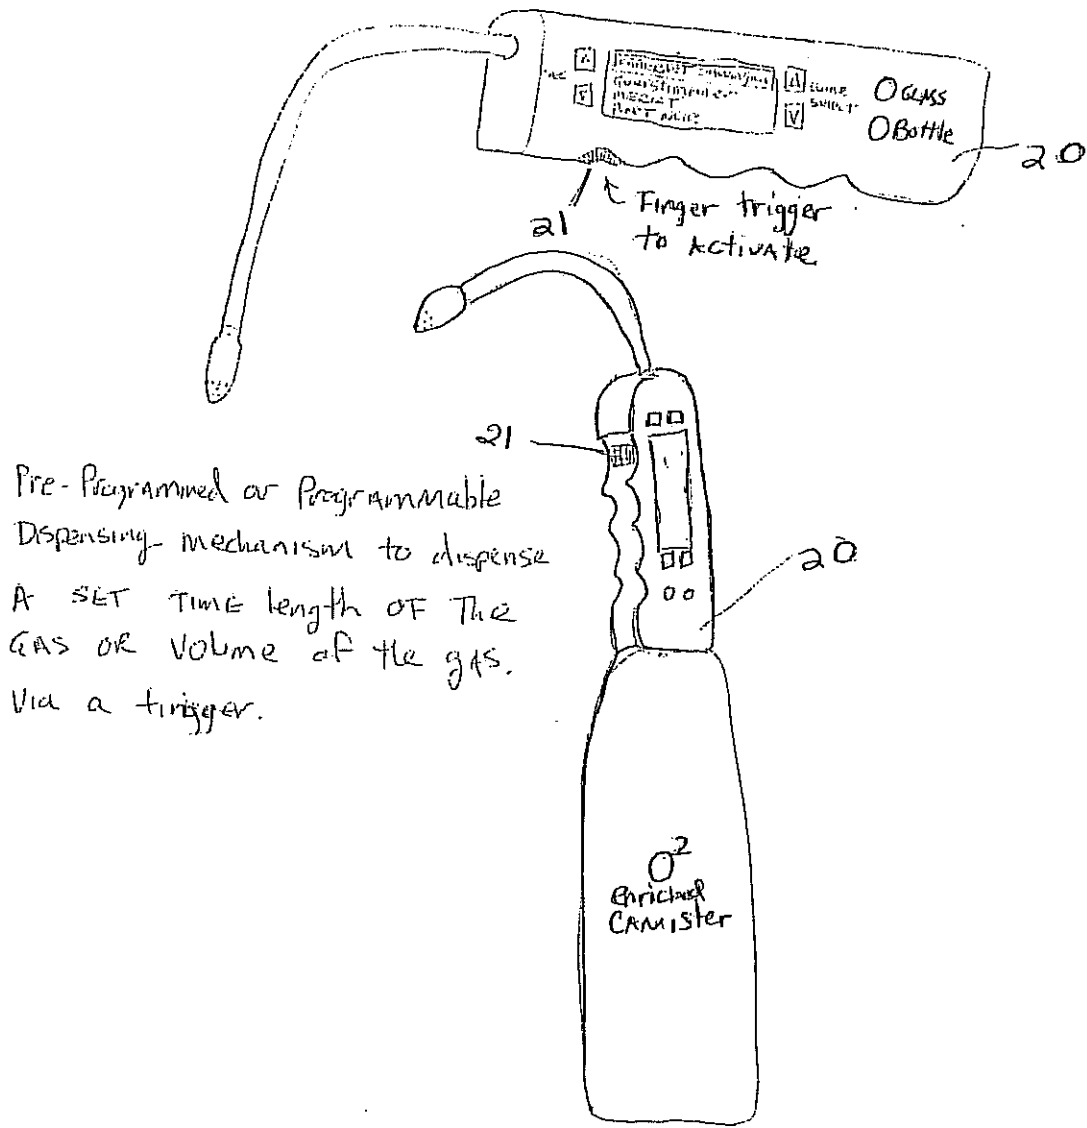 GLASS
Bottle
20
21
Finger trigger
to Activate
21
Pre-Programmed or Programmable
Dispensing mechanism to dispense
A SET TIME length OF The
GAS OR Volume of the gas.
Via a trigger.
20
O²
enriched
CANister